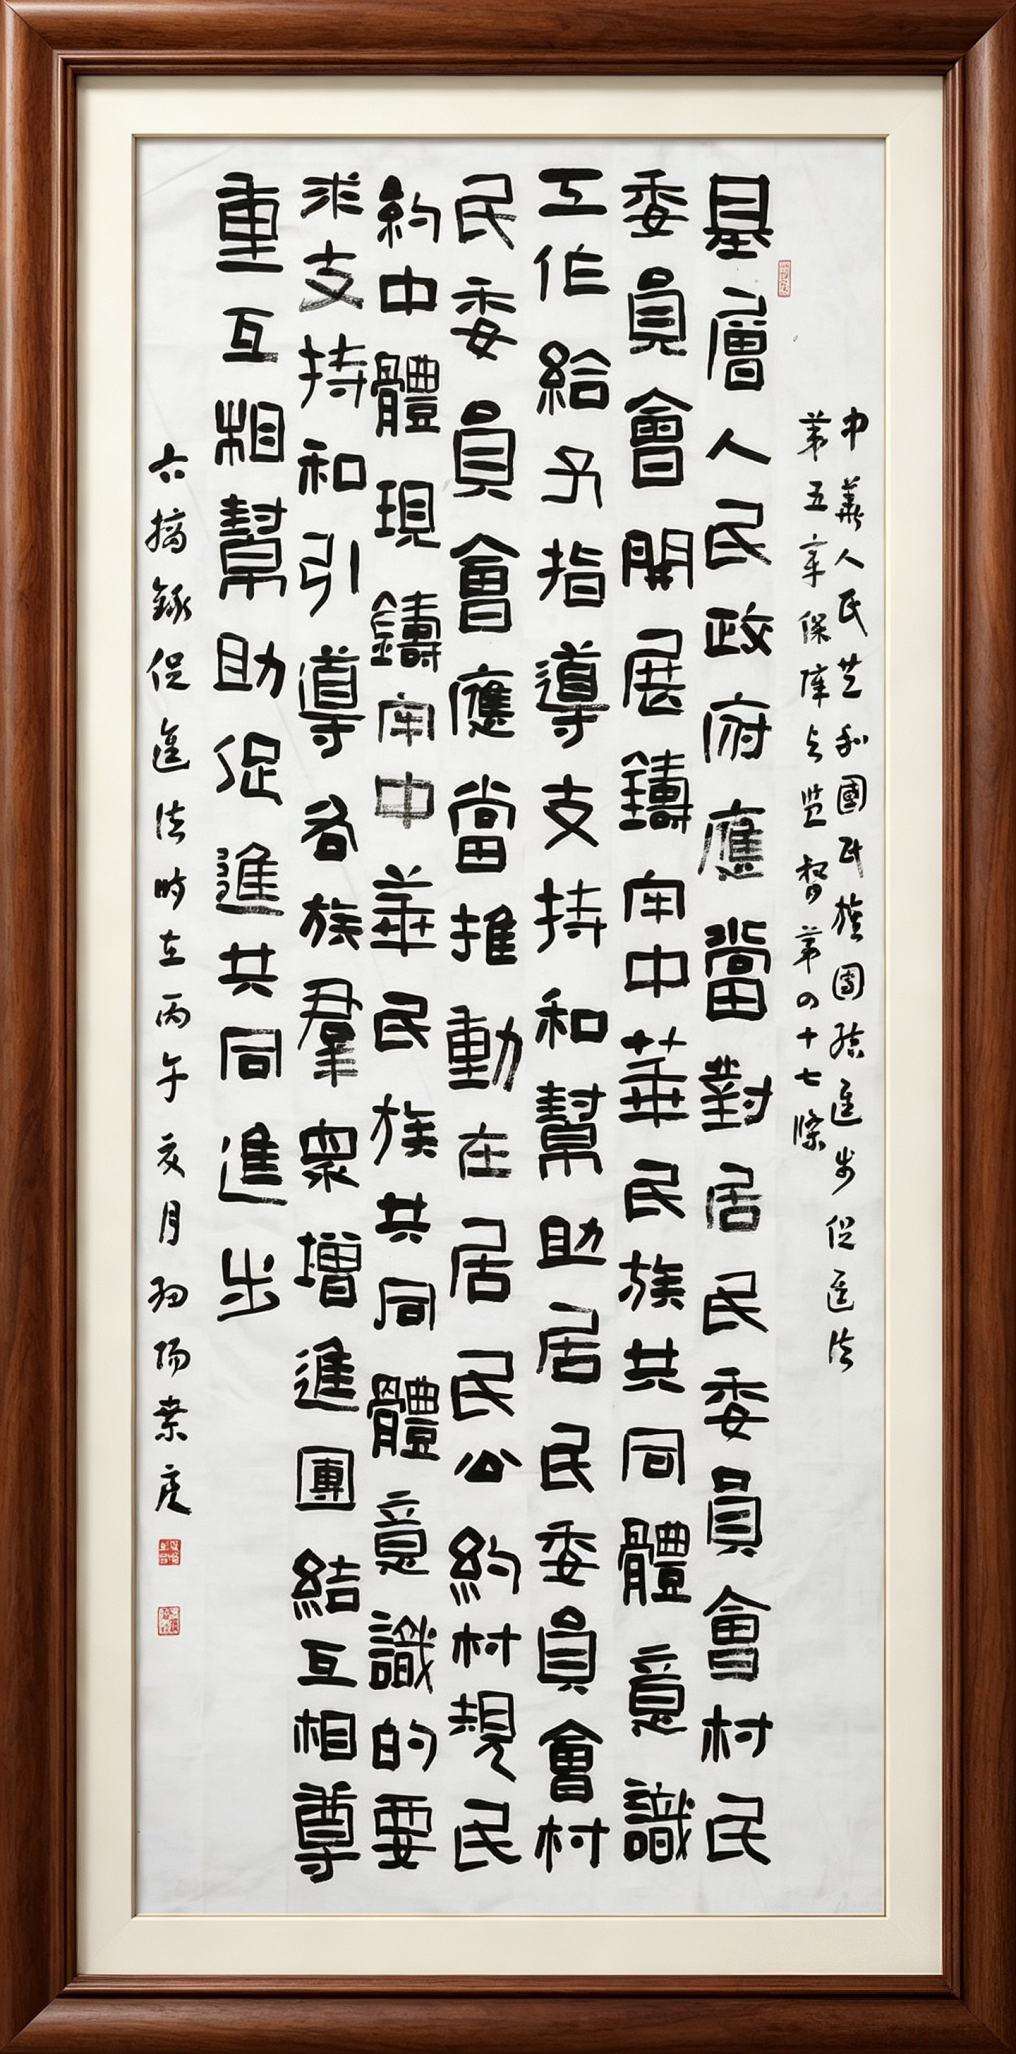 中華人民共和國民族團結進步促進法
第五章保障与监督第四十七條
基層人民政府應當對居民委員會村民
委員會開展鑄牢中華民族共同體意識
工作給予指導支持和幫助居民委員會村
民委員會應當推動在居民公約村規民
約中體現鑄牢中華民族共同體意識的要
求支持和引導各族羣眾增進團結互相尊
重互相幫助促進共同進步
六摘錄促進法時在丙午